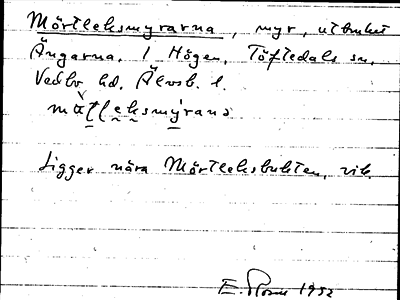 Mörtleksmyrarna, myr, utbruket
Ängarna, 1 Högen, Töftedals sn,
Vedbo hd, Älvsb. l.
mø̀t̯leksmýrana
Ligger nära Mörtleksbukten, vik.
E. 1952